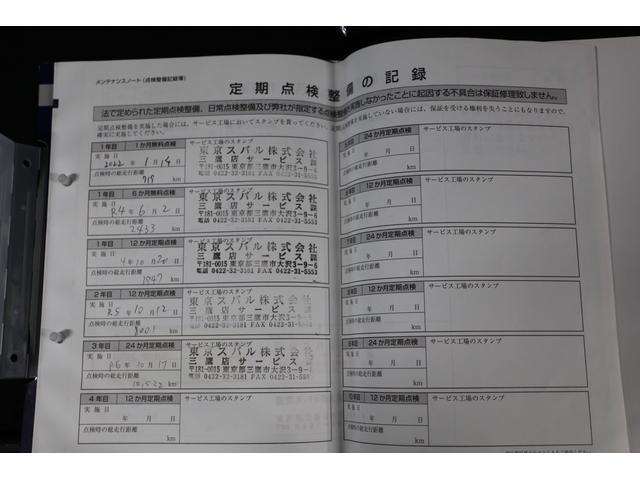 メンテナンスノート(点検整備記録簿)
定期点検整備の記録
法で定められた定期点検整備、日常点検整備及び弊社が指定する点検整備を実施しなかったことに起因する不具合は保証修理致しません。
1年目 1か月無料点検
サービス工場のスタンプ
実施日
2022年 1月14日
点検時の総走行距離
km
東京スバル株式会社
三鷹店サービス課
〒181-0015 東京都三鷹市大沢3-9-6
電話 0422-32-3181 FAX 0422-31-5553
1年目 6か月無料点検
サービス工場のスタンプ
実施日
R4年 6月 2日
点検時の総走行距離
2433 km
東京スバル株式会社
三鷹店サービス課
〒181-0015 東京都三鷹市大沢3-9-6
電話 0422-32-3181 FAX 0422-31-5553
1年目 12か月定期点検
サービス工場のスタンプ
実施日
4年10月20日
点検時の総走行距離
km
東京スバル株式会社
三鷹店サービス課
〒181-0015 東京都三鷹市大沢3-9-6
電話 0422-32-3181 FAX 0422-31-5553
2年目 12か月定期点検
サービス工場のスタンプ
実施日
R5年10月12日
点検時の総走行距離
8001 km
東京スバル株式会社
三鷹店サービス課
〒181-0015 東京都三鷹市大沢3-9-6
電話 0422-32-3181 FAX 0422-31-5553
3年目 24か月定期点検
サービス工場のスタンプ
実施日
R6年10月17日
点検時の総走行距離
km
東京スバル株式会社
三鷹店サービス課
〒181-0015 東京都三鷹市大沢3-9-6
電話 0422-32-3181 FAX 0422-31-5553
4年目 12か月定期点検
サービス工場のスタンプ
実施日
年 月 日
点検時の総走行距離
km
24か月定期点検
サービス工場のスタンプ
実施日
年 月 日
点検時の総走行距離
km
12か月定期点検
サービス工場のスタンプ
実施日
年 月 日
点検時の総走行距離
km
7年目 24か月定期点検
サービス工場のスタンプ
実施日
年 月 日
点検時の総走行距離
km
12か月定期点検
サービス工場のスタンプ
実施日
年 月 日
点検時の総走行距離
km
24か月定期点検
サービス工場のスタンプ
実施日
年 月 日
点検時の総走行距離
km
10年目 12か月定期点検
サービス工場のスタンプ
実施日
年 月 日
点検時の総走行距離
km